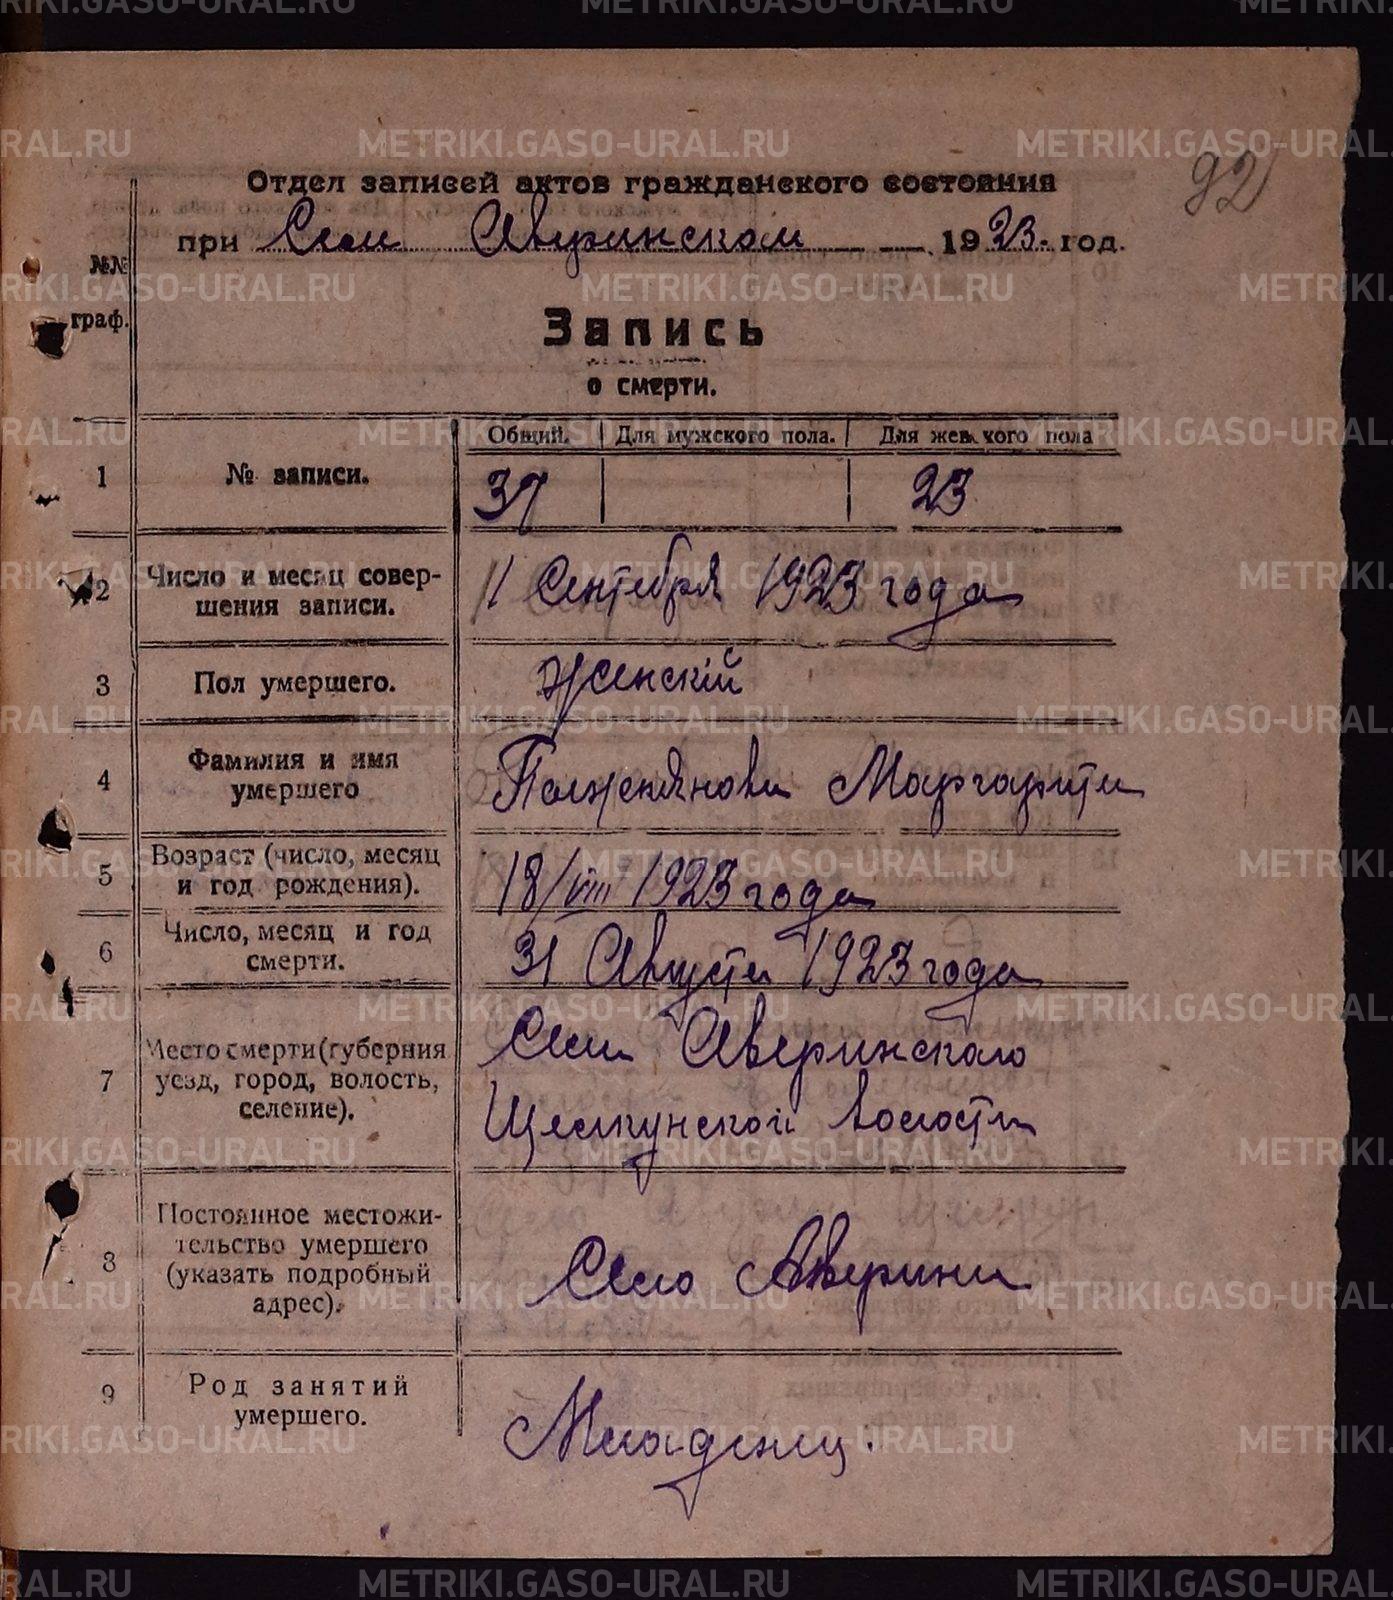 92
Отдел записей актов гражданского состояния
при Селе Аверинском 1923 год.
№№ граф.
Запись
о смерти.
Общий. Для мужского пола. Для женского пола
1 № записи. 37 23
2 Число и месяц совер-
шения записи. 11 Сентября 1923 года
3 Пол умершего. Женскій
4 Фамилия и имя
умершего Маргарита
5 Возраст (число, месяц
и год рождения). 18/VIII 1923 года
6 Число, месяц и год
смерти. 31 Августа 1923 года
7 Место смерти (губерния
уезд, город, волость,
селение). Села Аверинского
Щелкунской волости
8 Постоянное местожи-
тельство умершего
(указать подробный
адрес). Село Аверино
9 Род занятий
умершего. Младенец.
METRIKI.GASO-URAL.RU